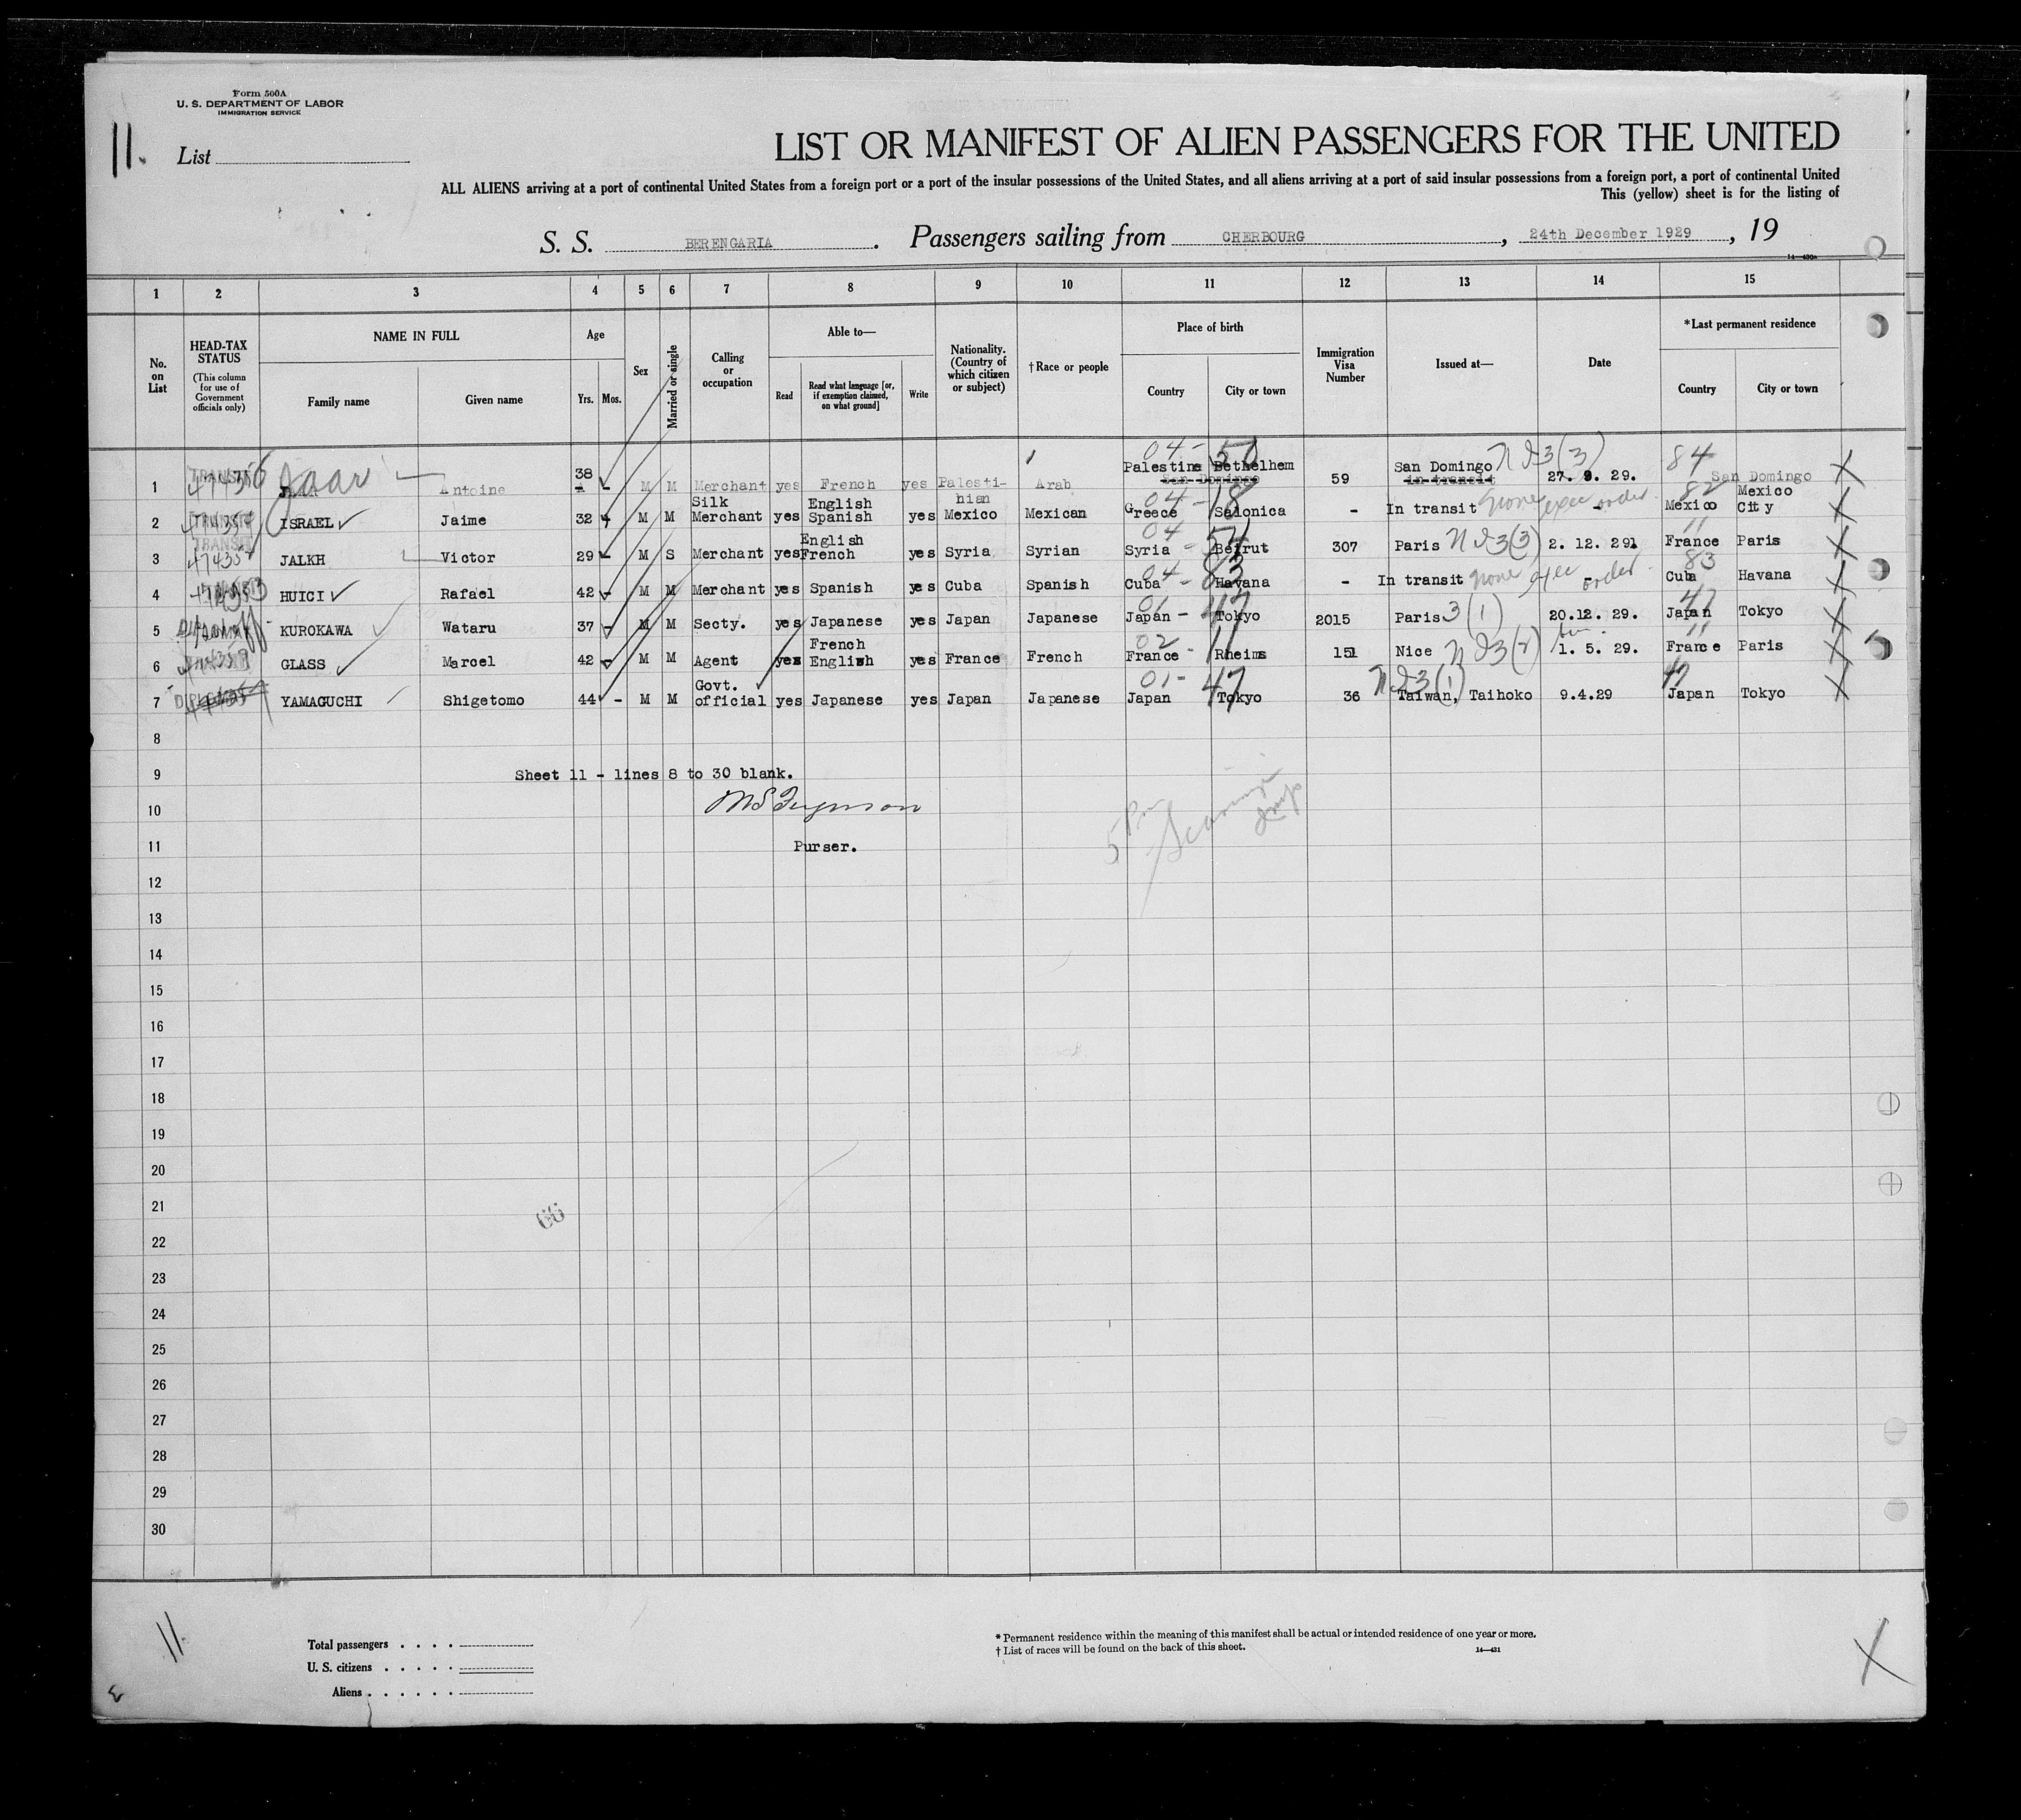 Form 500A
U. S. DEPARTMENT OF LABOR
IMMIGRATION SERVICE
11.
List
LIST OR MANIFEST OF ALIEN PASSENGERS FOR THE UNITED
ALL ALIENS arriving at a port of continental United States from a foreign port or a port of the insular possessions of the United States, and all aliens arriving at a port of said insular possessions from a foreign port, a port of continental United
This (yellow) sheet is for the listing of
S. S. BERENGARIA. Passengers sailing from CHERBOURG, 24th December 1929, 19
1 2 3 4 5 6 7 8 9 10 11 12 13 14 15
No. on List
HEAD-TAX STATUS (This column for use of Government officials only)
NAME IN FULL
Family name Given name
Age
Yrs. Mos.
Sex
Married or single
Calling or occupation
Able to—
Read
Read what language [or, if exemption claimed, on what ground]
Write
Nationality. (Country of which citizen or subject)
†Race or people
Place of birth
Country City or town
Immigration Visa Number
Issued at—
Date
*Last permanent residence
Country City or town
04 - 50 NI3(3) 84
1 TRANSIT 474356 Jaar Antoine 38 - M M Merchant yes French yes Palestinian Arab Palestine Bethelhem San Domingo 59 San Domingo in transit 27. 9. 29. San Domingo
04 - 18 82
2 TRANSIT ISRAEL Jaime 32 M M Silk Merchant yes English Spanish yes Mexico Mexican Greece Salonica - In transit none exec order. - Mexico Mexico City
04 - 54 11
3 TRANSIT 474357 JALKH Victor 29 - M S Merchant yes English French yes Syria Syrian Syria Beirut 307 Paris NI3(3) 2. 12. 29 France Paris
04 - 83 83
4 HUICI Rafael 42 - M M Merchant yes Spanish yes Cuba Spanish Cuba Havana - In transit none exec order. - Cuba Havana
01 - 47 47
5 KUROKAWA Wataru 37 - M M Secty. yes Japanese yes Japan Japanese Japan Tokyo 2015 Paris 3(1) 20.12. 29. Japan Tokyo
02 - 11 11
6 GLASS Marcel 42 M M Agent yes French English yes France French France Rheims 151 Nice NI3(2) 1. 5. 29. France Paris
01 - 47 NI3(1) 47
7 YAMAGUCHI Shigetomo 44 - M M Govt. official yes Japanese yes Japan Japanese Japan Tokyo 36 Taiwan, Taihoko 9.4.29 Japan Tokyo
8
9 Sheet 11 - lines 8 to 30 blank.
10
11 Purser.
12
13
14
15
16
17
18
19
20
21
66
22
23
24
25
26
27
28
29
30
11
Total passengers . . . .
U. S. citizens . . . . .
Aliens . . . . . .
* Permanent residence within the meaning of this manifest shall be actual or intended residence of one year or more.
† List of races will be found on the back of this sheet.
14—431